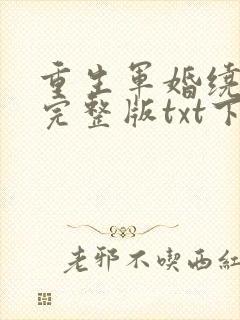 重生军婚绕
完整版txt下
老邪不吃西红